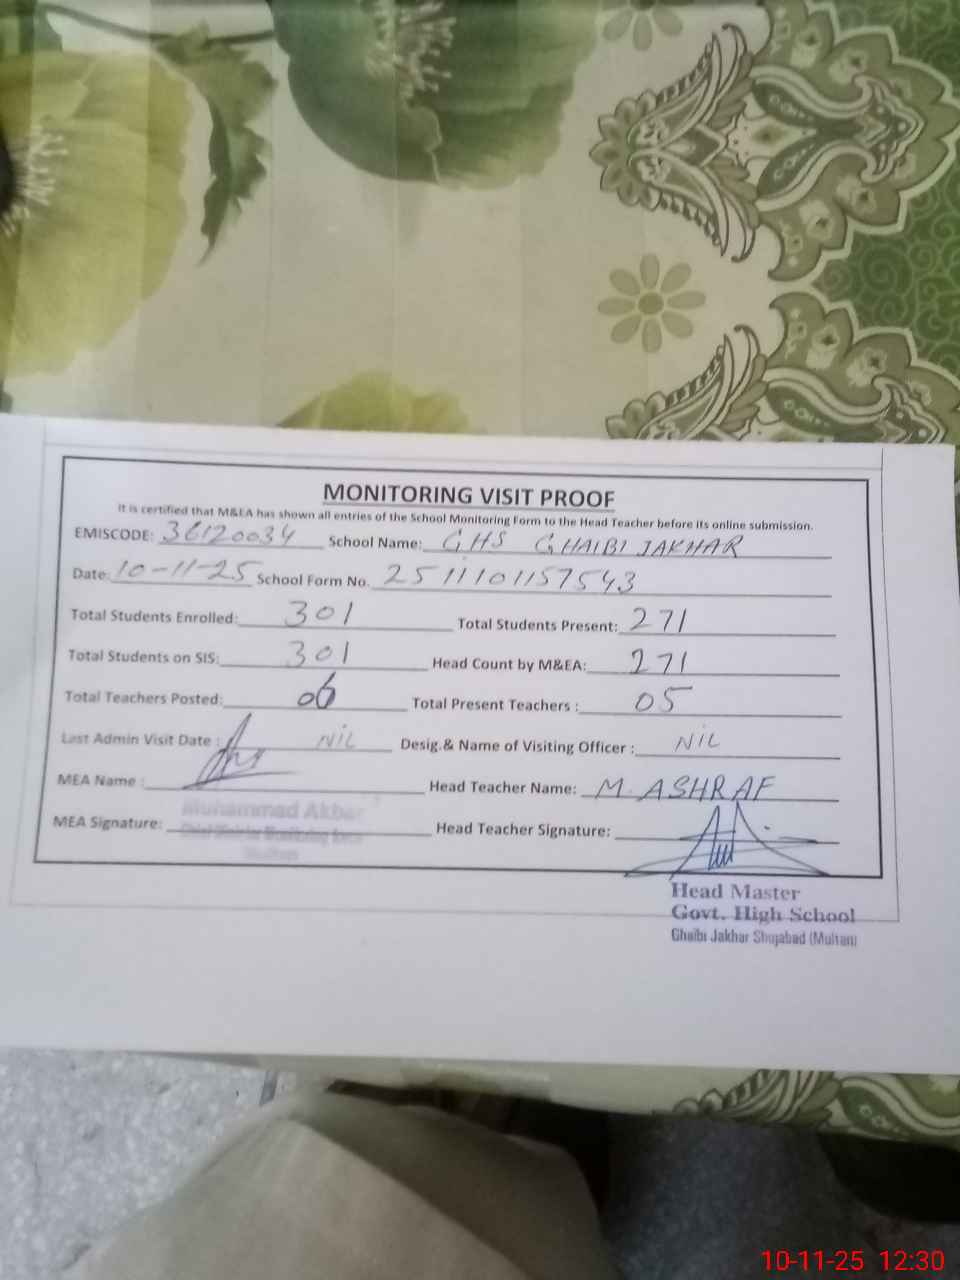 MONITORING VISIT PROOF
It is certified that M&EA has shown all entries of the School Monitoring Form to the Head Teacher before its online submission.
EMISCODE: 36120034 School Name: GHS GHAIBI JAKHAR
Date: 10-11-25 School Form No. 2511101157543
Total Students Enrolled: 301 Total Students Present: 271
Total Students on SIS: 301 Head Count by M&EA: 271
Total Teachers Posted: 06 Total Present Teachers : 05
Last Admin Visit Date : NIL Desig.& Name of Visiting Officer : NIL
MEA Name : Head Teacher Name: M. ASHRAF
Muhammad Akbar
MEA Signature: Head Teacher Signature:
Head Master
Govt. High School
Ghaibi Jakhar Shujabad (Multan)
10-11-25 12:30